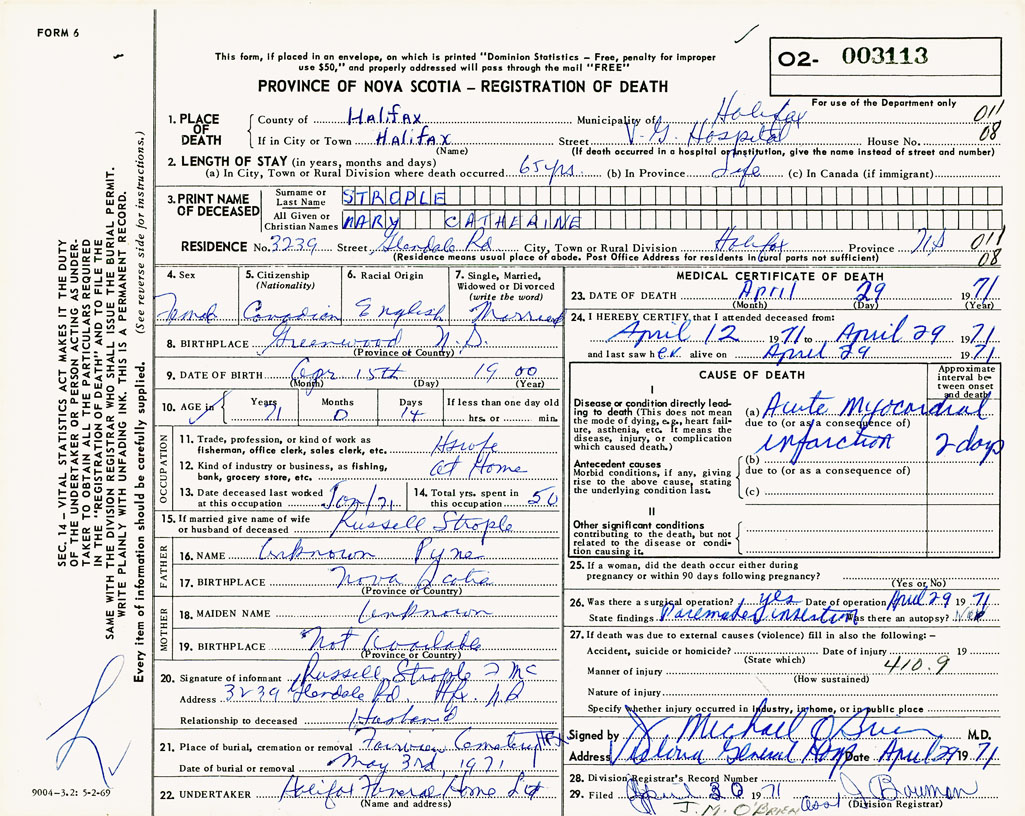 FORM 6
This form, if placed in an envelope, on which is printed "Dominion Statistics – Free, penalty for improper
use $50," and properly addressed will pass through the mail "FREE"
O2- 003113
PROVINCE OF NOVA SCOTIA – REGISTRATION OF DEATH
For use of the Department only
1. PLACE OF DEATH { County of Halifax Municipality of Halifax 011
If in City or Town Halifax (Name) Street V.G. Hospital House No. 08
(If death occurred in a hospital or institution, give the name instead of street and number)
2. LENGTH OF STAY (in years, months and days)
(a) In City, Town or Rural Division where death occurred 65 yrs. (b) In Province Life (c) In Canada (if immigrant)
3. PRINT NAME OF DECEASED { Surname or Last Name STROPLE
All Given or Christian Names MARY CATHERINE
RESIDENCE No. 3239 Street Glendale Rd City, Town or Rural Division Halifax Province N.S 011
(Residence means usual place of abode. Post Office Address for residents in rural parts not sufficient) 08
4. Sex 5. Citizenship (Nationality) 6. Racial Origin 7. Single, Married, Widowed or Divorced (write the word)
Female Canadian English Married
8. BIRTHPLACE Greenwood N.S.
(Province or Country)
9. DATE OF BIRTH Apr 15th 1900
(Month) (Day) (Year)
10. AGE in { Years Months Days If less than one day old
71 0 14 hrs. or min.
OCCUPATION
11. Trade, profession, or kind of work as
fisherman, office clerk, sales clerk, etc. Hswfe
12. Kind of industry or business, as fishing,
bank, grocery store, etc. at Home
13. Date deceased last worked at this occupation Jan/71 14. Total yrs. spent in this occupation 50
15. If married give name of wife
or husband of deceased Russell Strople
FATHER
16. NAME Unknown Pyne
17. BIRTHPLACE Nova Scotia
(Province or Country)
MOTHER
18. MAIDEN NAME Unknown
19. BIRTHPLACE Not Available
(Province or Country)
20. Signature of informant Russell Strople
Address 3239 Glendale Rd Hfx. NS
Relationship to deceased Husband
21. Place of burial, cremation or removal Fairview Cemetery Hfx
Date of burial or removal May 3rd, 1971
22. UNDERTAKER Halifax Funeral Home Ltd
(Name and address)
MEDICAL CERTIFICATE OF DEATH
23. DATE OF DEATH April 29 1971
(Month) (Day) (Year)
24. I HEREBY CERTIFY that I attended deceased from
April 12 1971 to April 29 1971
and last saw her alive on April 29 1971
CAUSE OF DEATH
Approximate interval between onset and death
I
Disease or condition directly leading to death (This does not mean the mode of dying, e.g., heart failure, asthenia, etc. It means the disease, injury, or complication which caused death.)
(a) Acute Myocardial
due to (or as a consequence of)
infarction 2 days
Antecedent causes
Morbid conditions, if any, giving rise to the above cause, stating the underlying condition last.
(b)
due to (or as a consequence of)
(c)
II
Other significant conditions
contributing to the death, but not
related to the disease or condition causing it.
25. If a woman, did the death occur either during
pregnancy or within 90 days following pregnancy?
(Yes or No)
26. Was there a surgical operation? yes Date of operation April 29 1971
State findings Pacemaker insertion Was there an autopsy?
27. If death was due to external causes (violence) fill in also the following: –
Accident, suicide or homicide? Date of injury 19
(State which)
Manner of injury 410.9
(How sustained)
Nature of injury
Specify whether injury occurred in industry, in home, or in public place
Signed by J. Michael O'Brien M.D.
Address Victoria General Hosp Date April 29 1971
28. Division Registrar's Record Number
29. Filed April 30 1971 J Bowman
J.M. O'BRIEN (Division Registrar)
SEC. 14 – VITAL STATISTICS ACT MAKES IT THE DUTY
OF THE UNDERTAKER OR PERSON ACTING AS UNDER-
TAKER TO OBTAIN ALL THE PARTICULARS REQUIRED
IN THE "REGISTRATION OF DEATH" AND TO FILE THE
SAME WITH THE DIVISION REGISTRAR WHO SHALL ISSUE THE BURIAL PERMIT.
WRITE PLAINLY WITH UNFADING INK. THIS IS A PERMANENT RECORD.
Every item of information should be carefully supplied. (See reverse side for instructions.)
9004–3.2: 5-2-69